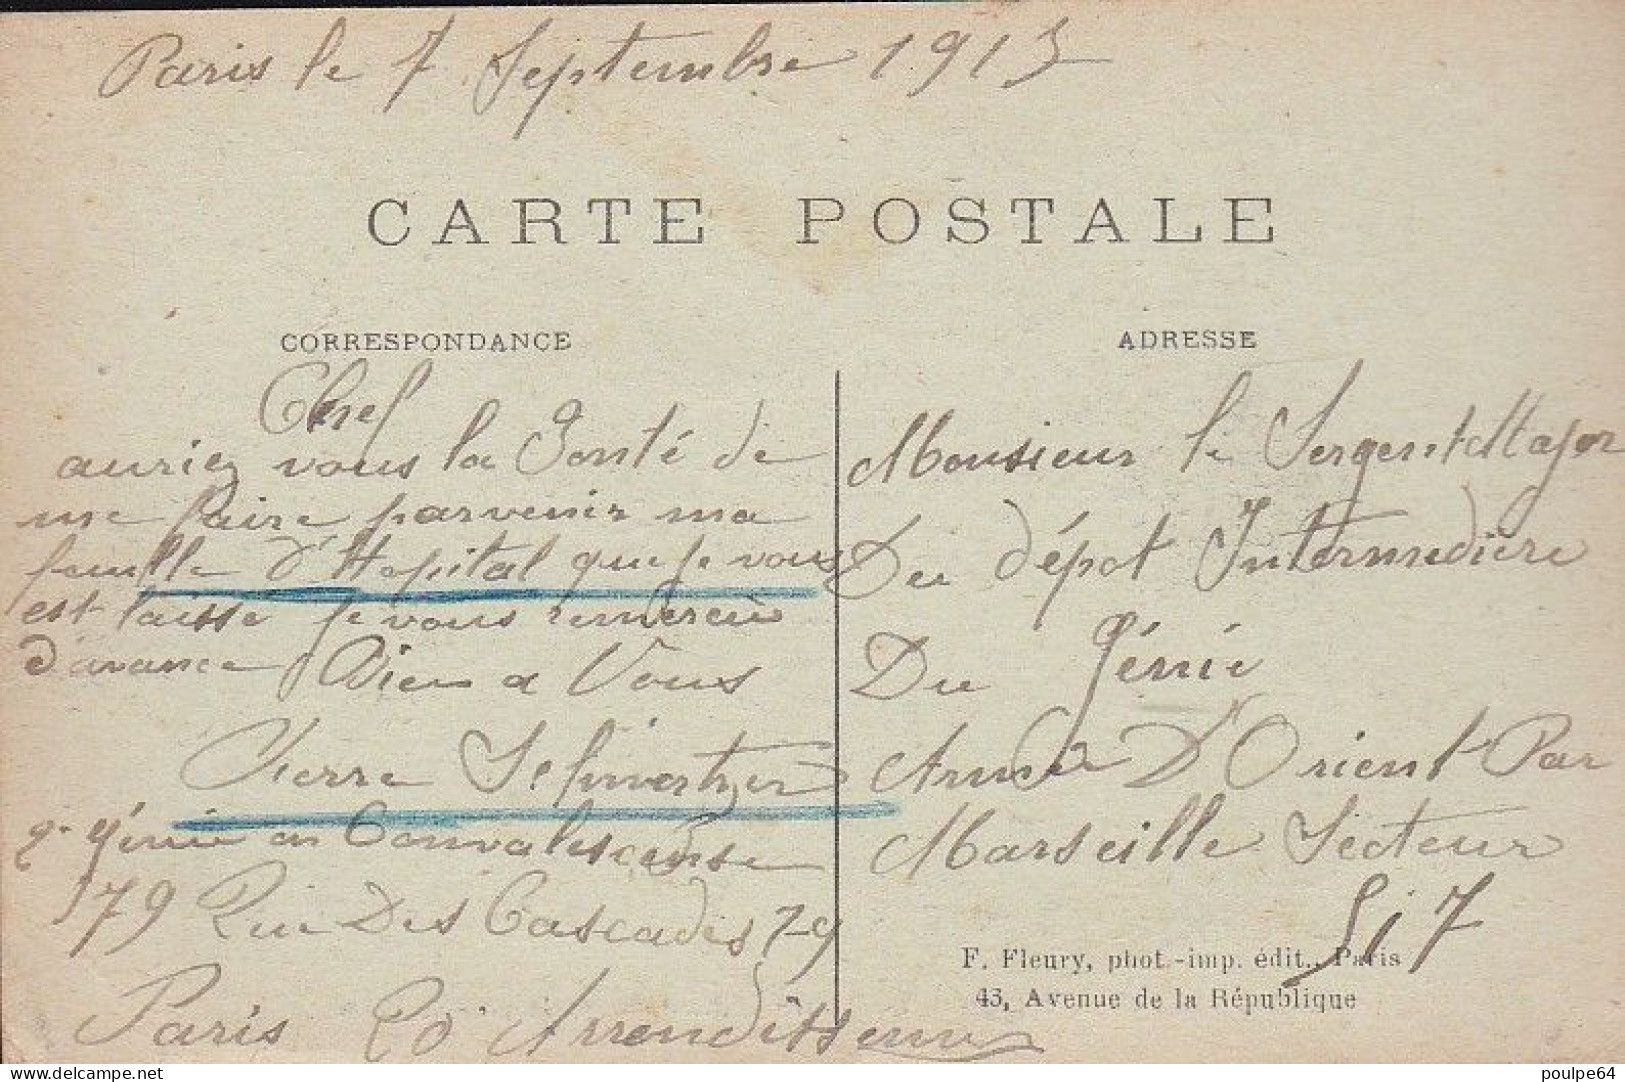 Paris le 7 Septembre 1915
CARTE POSTALE
CORRESPONDANCE
Chef
auriez vous la Bonté de
me faire parvenir ma
feuille d'Hopital que je vous
est laisse je vous remercie
d'avance Bien a Vous
Pierre Schwertzer
2e génie en Convalescense
79 Rue Des Cascades 79
Paris 20e Arrondissem
ADRESSE
Monsieur le Sergent Major
Du dépot Intermedière
Du Génie
Armée D'Orient Par
Marseille Secteur
517
F. Fleury, phot.-imp. édit., Paris
43, Avenue de la République
www.delcampe.net
poulpe64